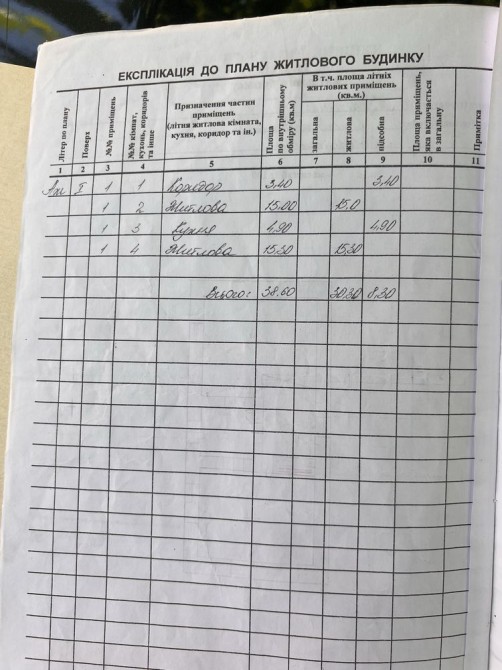 ЕКСПЛІКАЦІЯ ДО ПЛАНУ ЖИТЛОВОГО БУДИНКУ
Літер по плану
Поверх
№№ приміщень
№№ кімнат, кухонь, коридорів та інше
Призначення частин приміщень (літня житлова кімната, кухня, коридор та ін.)
Площа по внутрішньому обміру (кв.м)
В т.ч. площа літніх житлових приміщень (кв.м.)
загальна
житлова
підсобна
Площа приміщень, яка включається в загальну
Примітка
1 2 3 4 5 6 7 8 9 10 11
I 1 1 Коридор 3,40 3,40
1 2 Житлова 15.00 15.0
1 3 Кухня 4,90 4,90
1 4 Житлова 15.30 15,30
Всього: 38.60 30.30 8,30